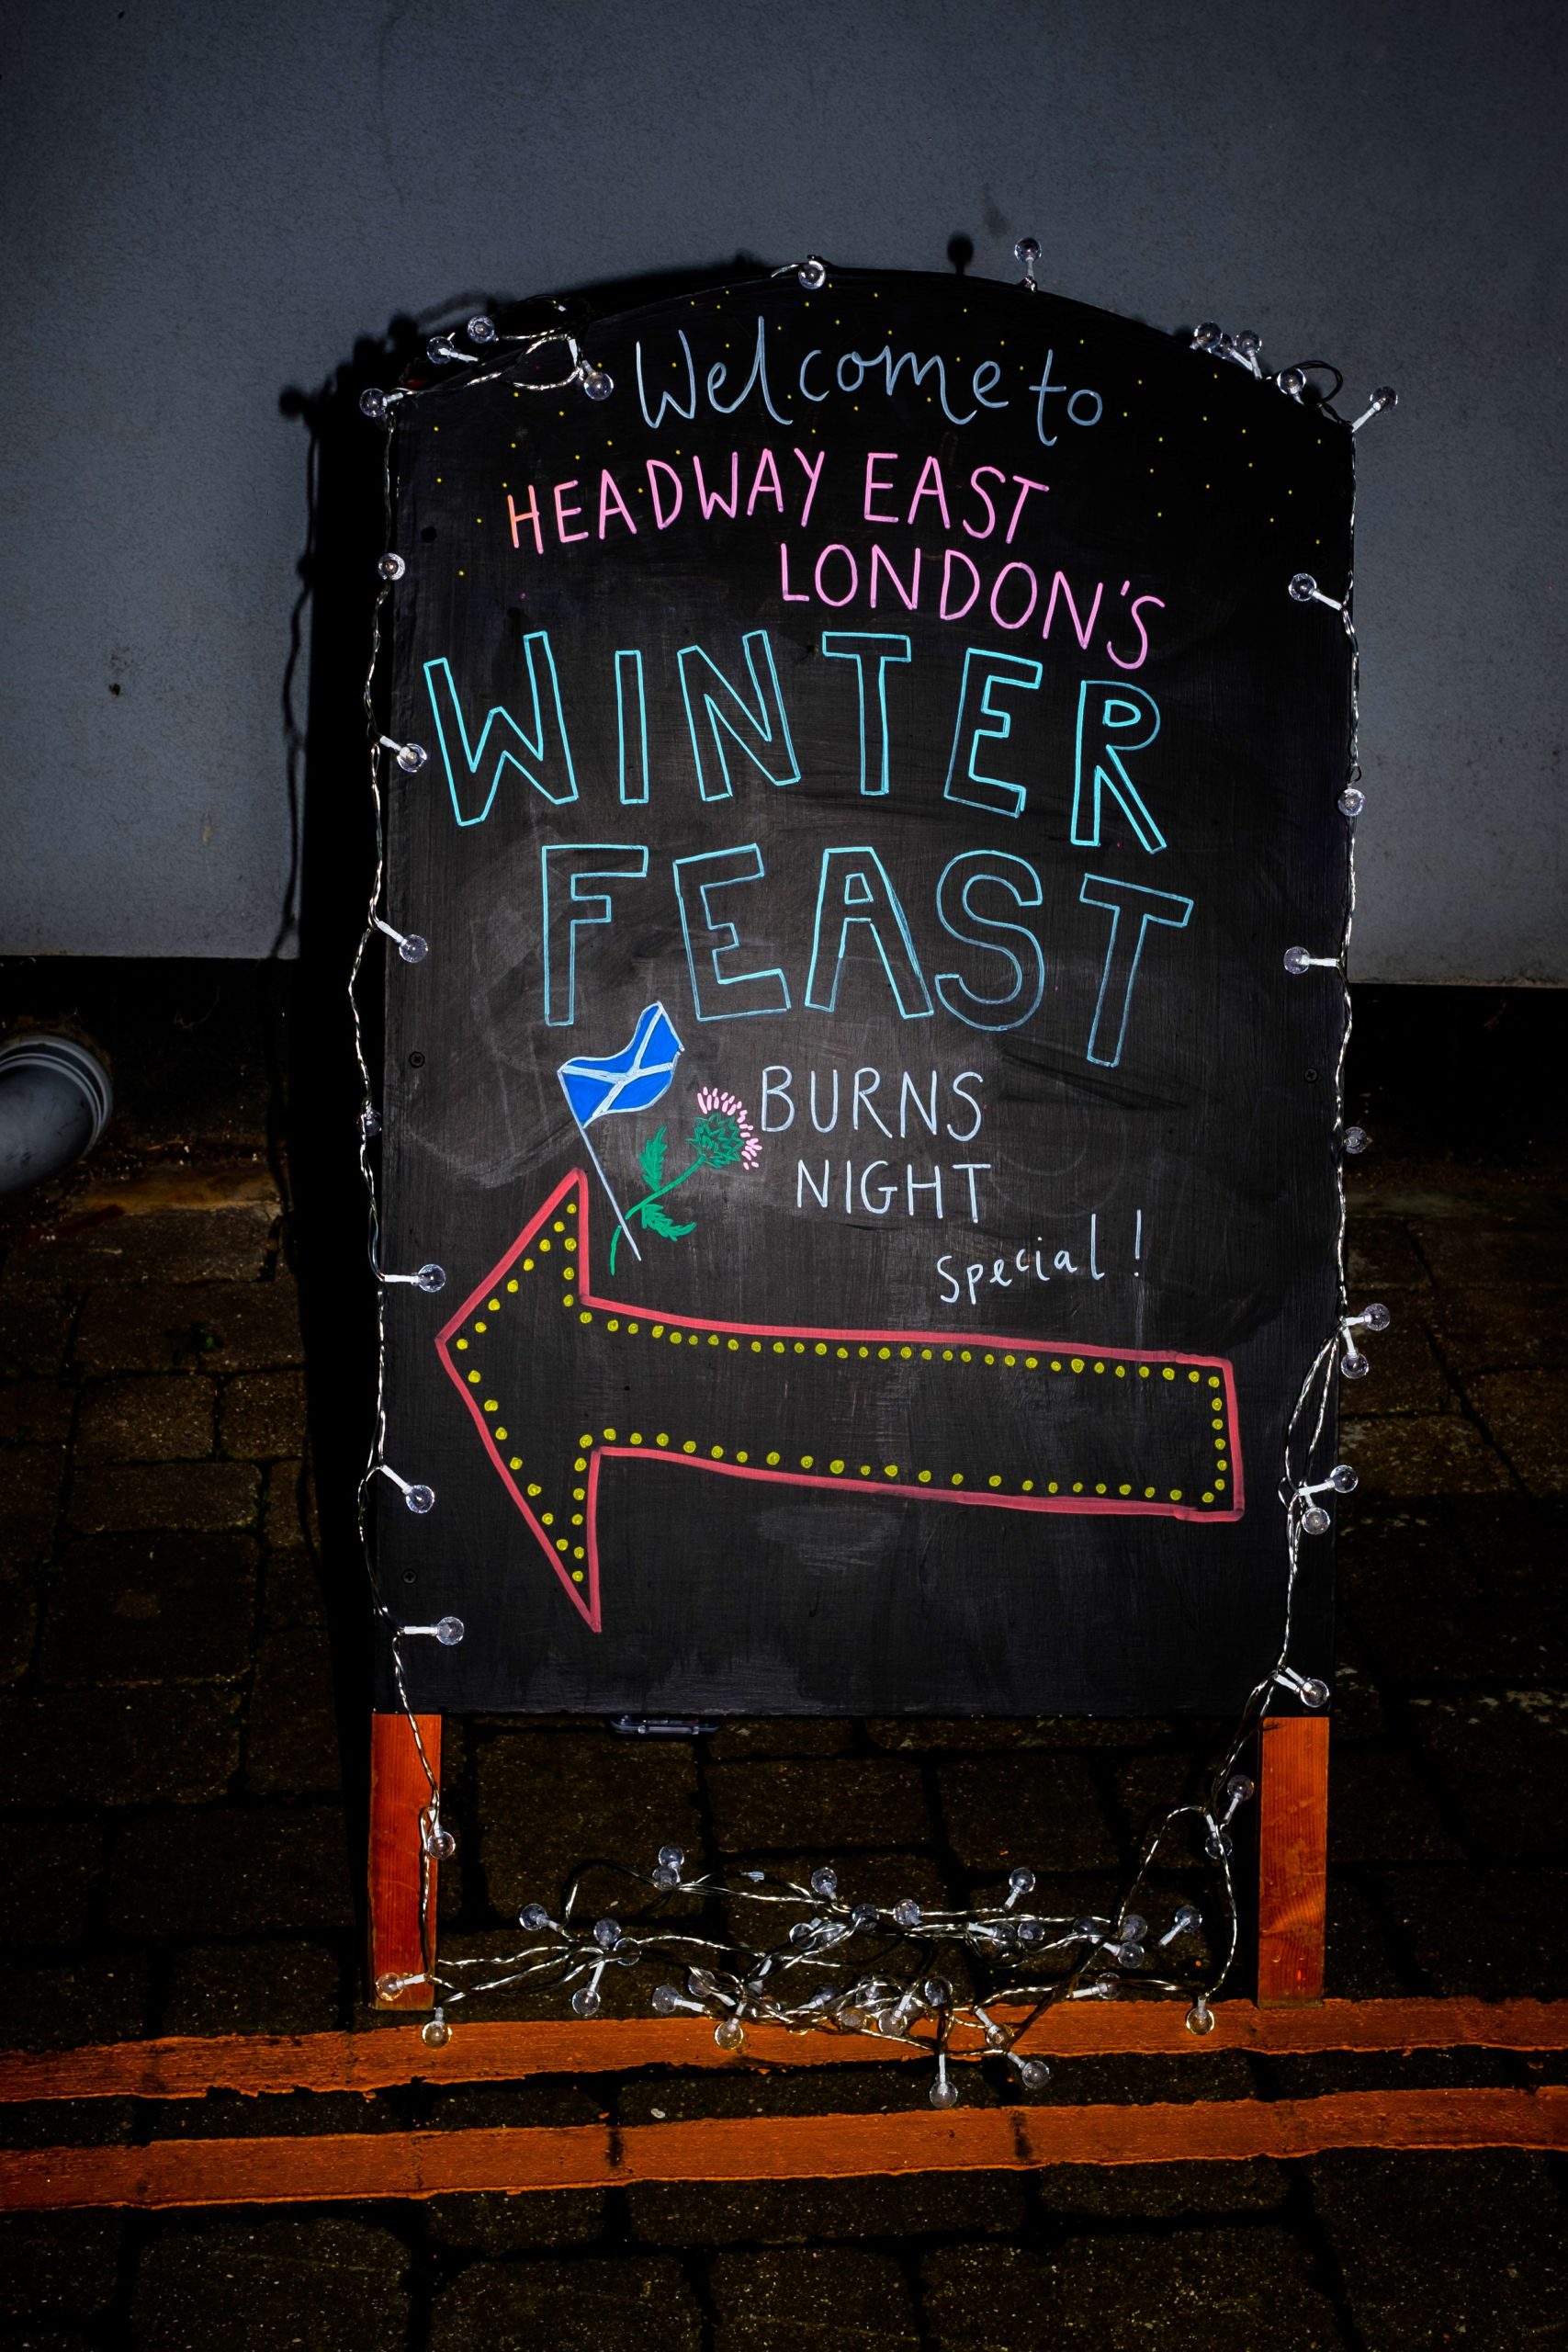 Welcome to
HEADWAY EAST
LONDON'S
WINTER
FEAST
BURNS
NIGHT
Special!